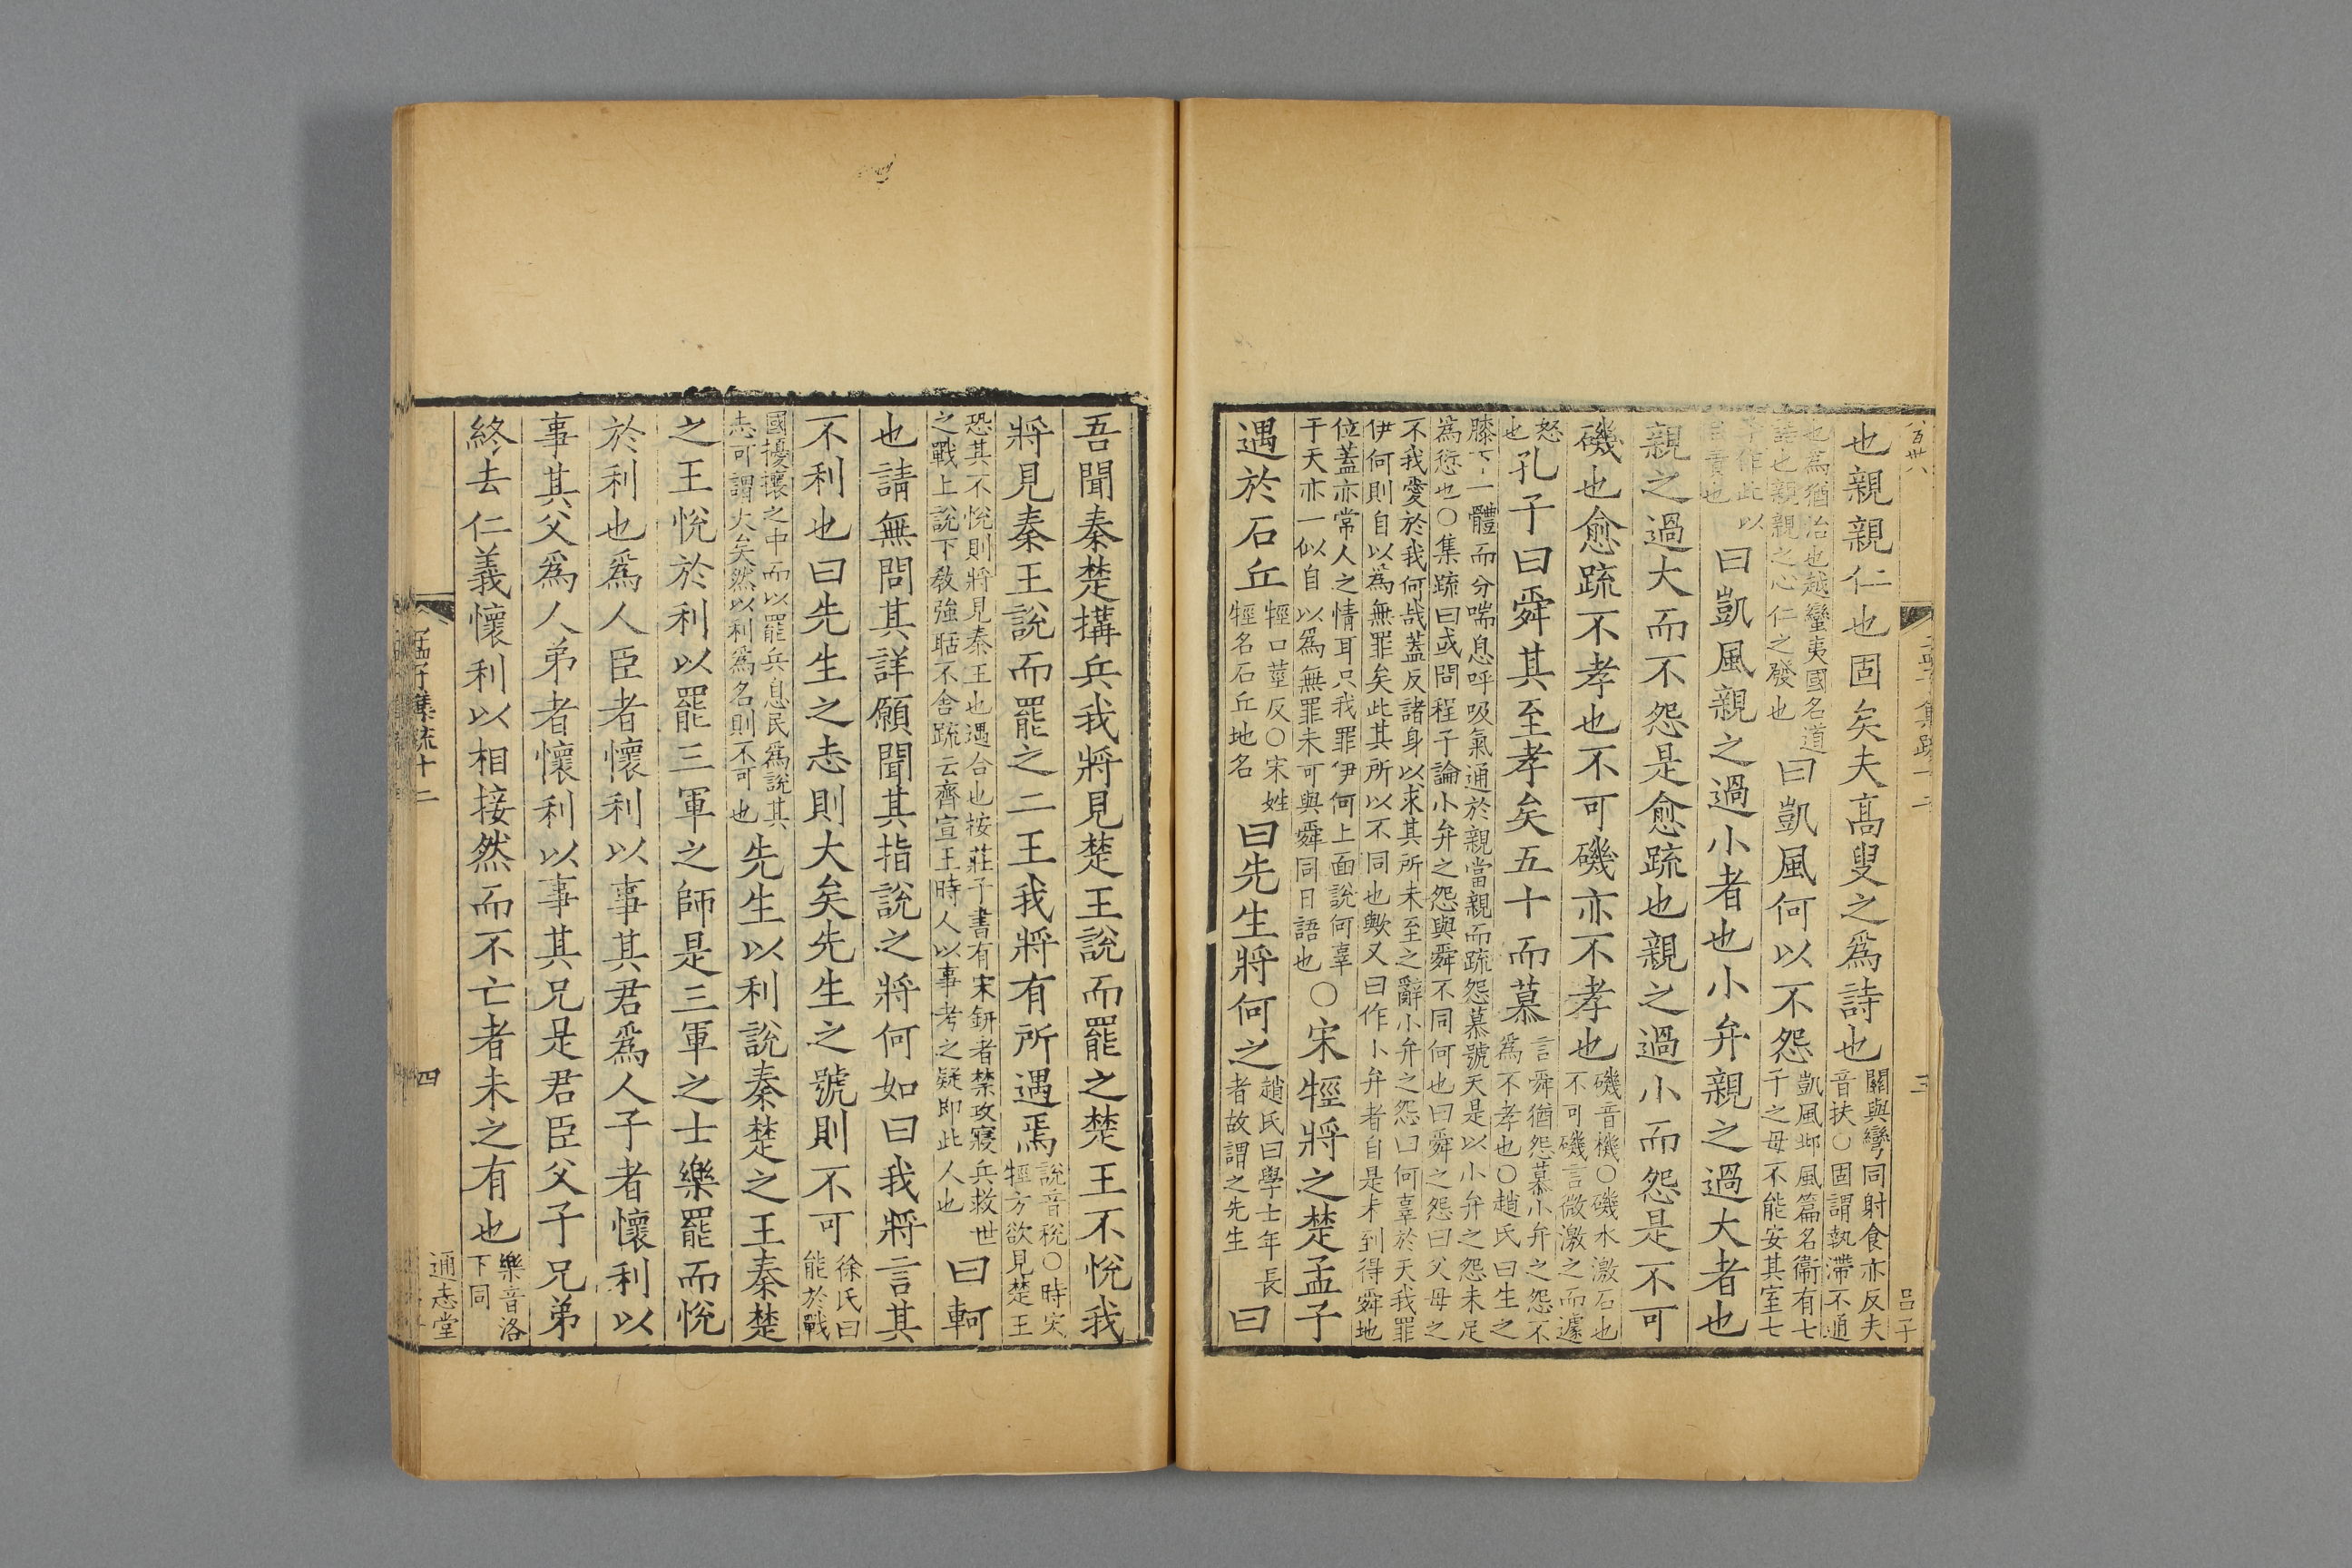 八百卅八
孟子集疏十二
三
呂子
也親親仁也固矣夫高叟之爲詩也關與彎同射食亦反夫音扶○固謂執滯不通
也爲猶治也越蠻夷國名道語也親親之心仁之發也曰凱風何以不怨凱風邶風篇名衞有七子之母不能安其室七
子作此以自責也曰凱風親之過小者也小弁親之過大者也
親之過大而不怨是愈疏也親之過小而怨是不可
磯也愈疏不孝也不可磯亦不孝也磯音機○磯水激石也不可磯言微激之而遽
怒也孔子曰舜其至孝矣五十而慕言舜猶怨慕小弁之怨不爲不孝也○趙氏曰生之
膝下一體而分喘息呼吸氣通於親當親而疏怨慕號天是以小弁之怨未足
爲愆也○集疏曰或問程子論小弁之怨與舜不同何也曰舜之怨曰父母之
不我愛於我何哉蓋反諸身以求其所未至之辭小弁之怨曰何辜於天我罪
伊何則自以爲無罪矣此其所以不同也歟又曰作小弁者自是未到得舜地
位蓋亦常人之情耳只我罪伊何上面說何辜于天亦一似自以爲無罪未可與舜同日語也○宋牼將之楚孟子
遇於石丘牼口莖反○宋姓牼名石丘地名曰先生將何之趙氏曰學士年長者故謂之先生曰
吾聞秦楚搆兵我將見楚王說而罷之楚王不悅我
將見秦王說而罷之二王我將有所遇焉說音稅○時宋牼方欲見楚王
恐其不悅則將見秦王也遇合也按莊子書有宋鈃者禁攻寢兵救世之戰上說下教強聒不舍疏云齊宣王時人以事考之疑即此人也曰軻
也請無問其詳願聞其指說之將何如曰我將言其
不利也曰先生之志則大矣先生之號則不可徐氏曰能於戰
國擾攘之中而以罷兵息民爲說其志可謂大矣然以利爲名則不可也先生以利說秦楚之王秦楚
之王悅於利以罷三軍之師是三軍之士樂罷而悅
於利也爲人臣者懷利以事其君爲人子者懷利以
事其父爲人弟者懷利以事其兄是君臣父子兄弟
終去仁義懷利以相接然而不亡者未之有也樂音洛下同
孟子集疏十二
四
通志堂